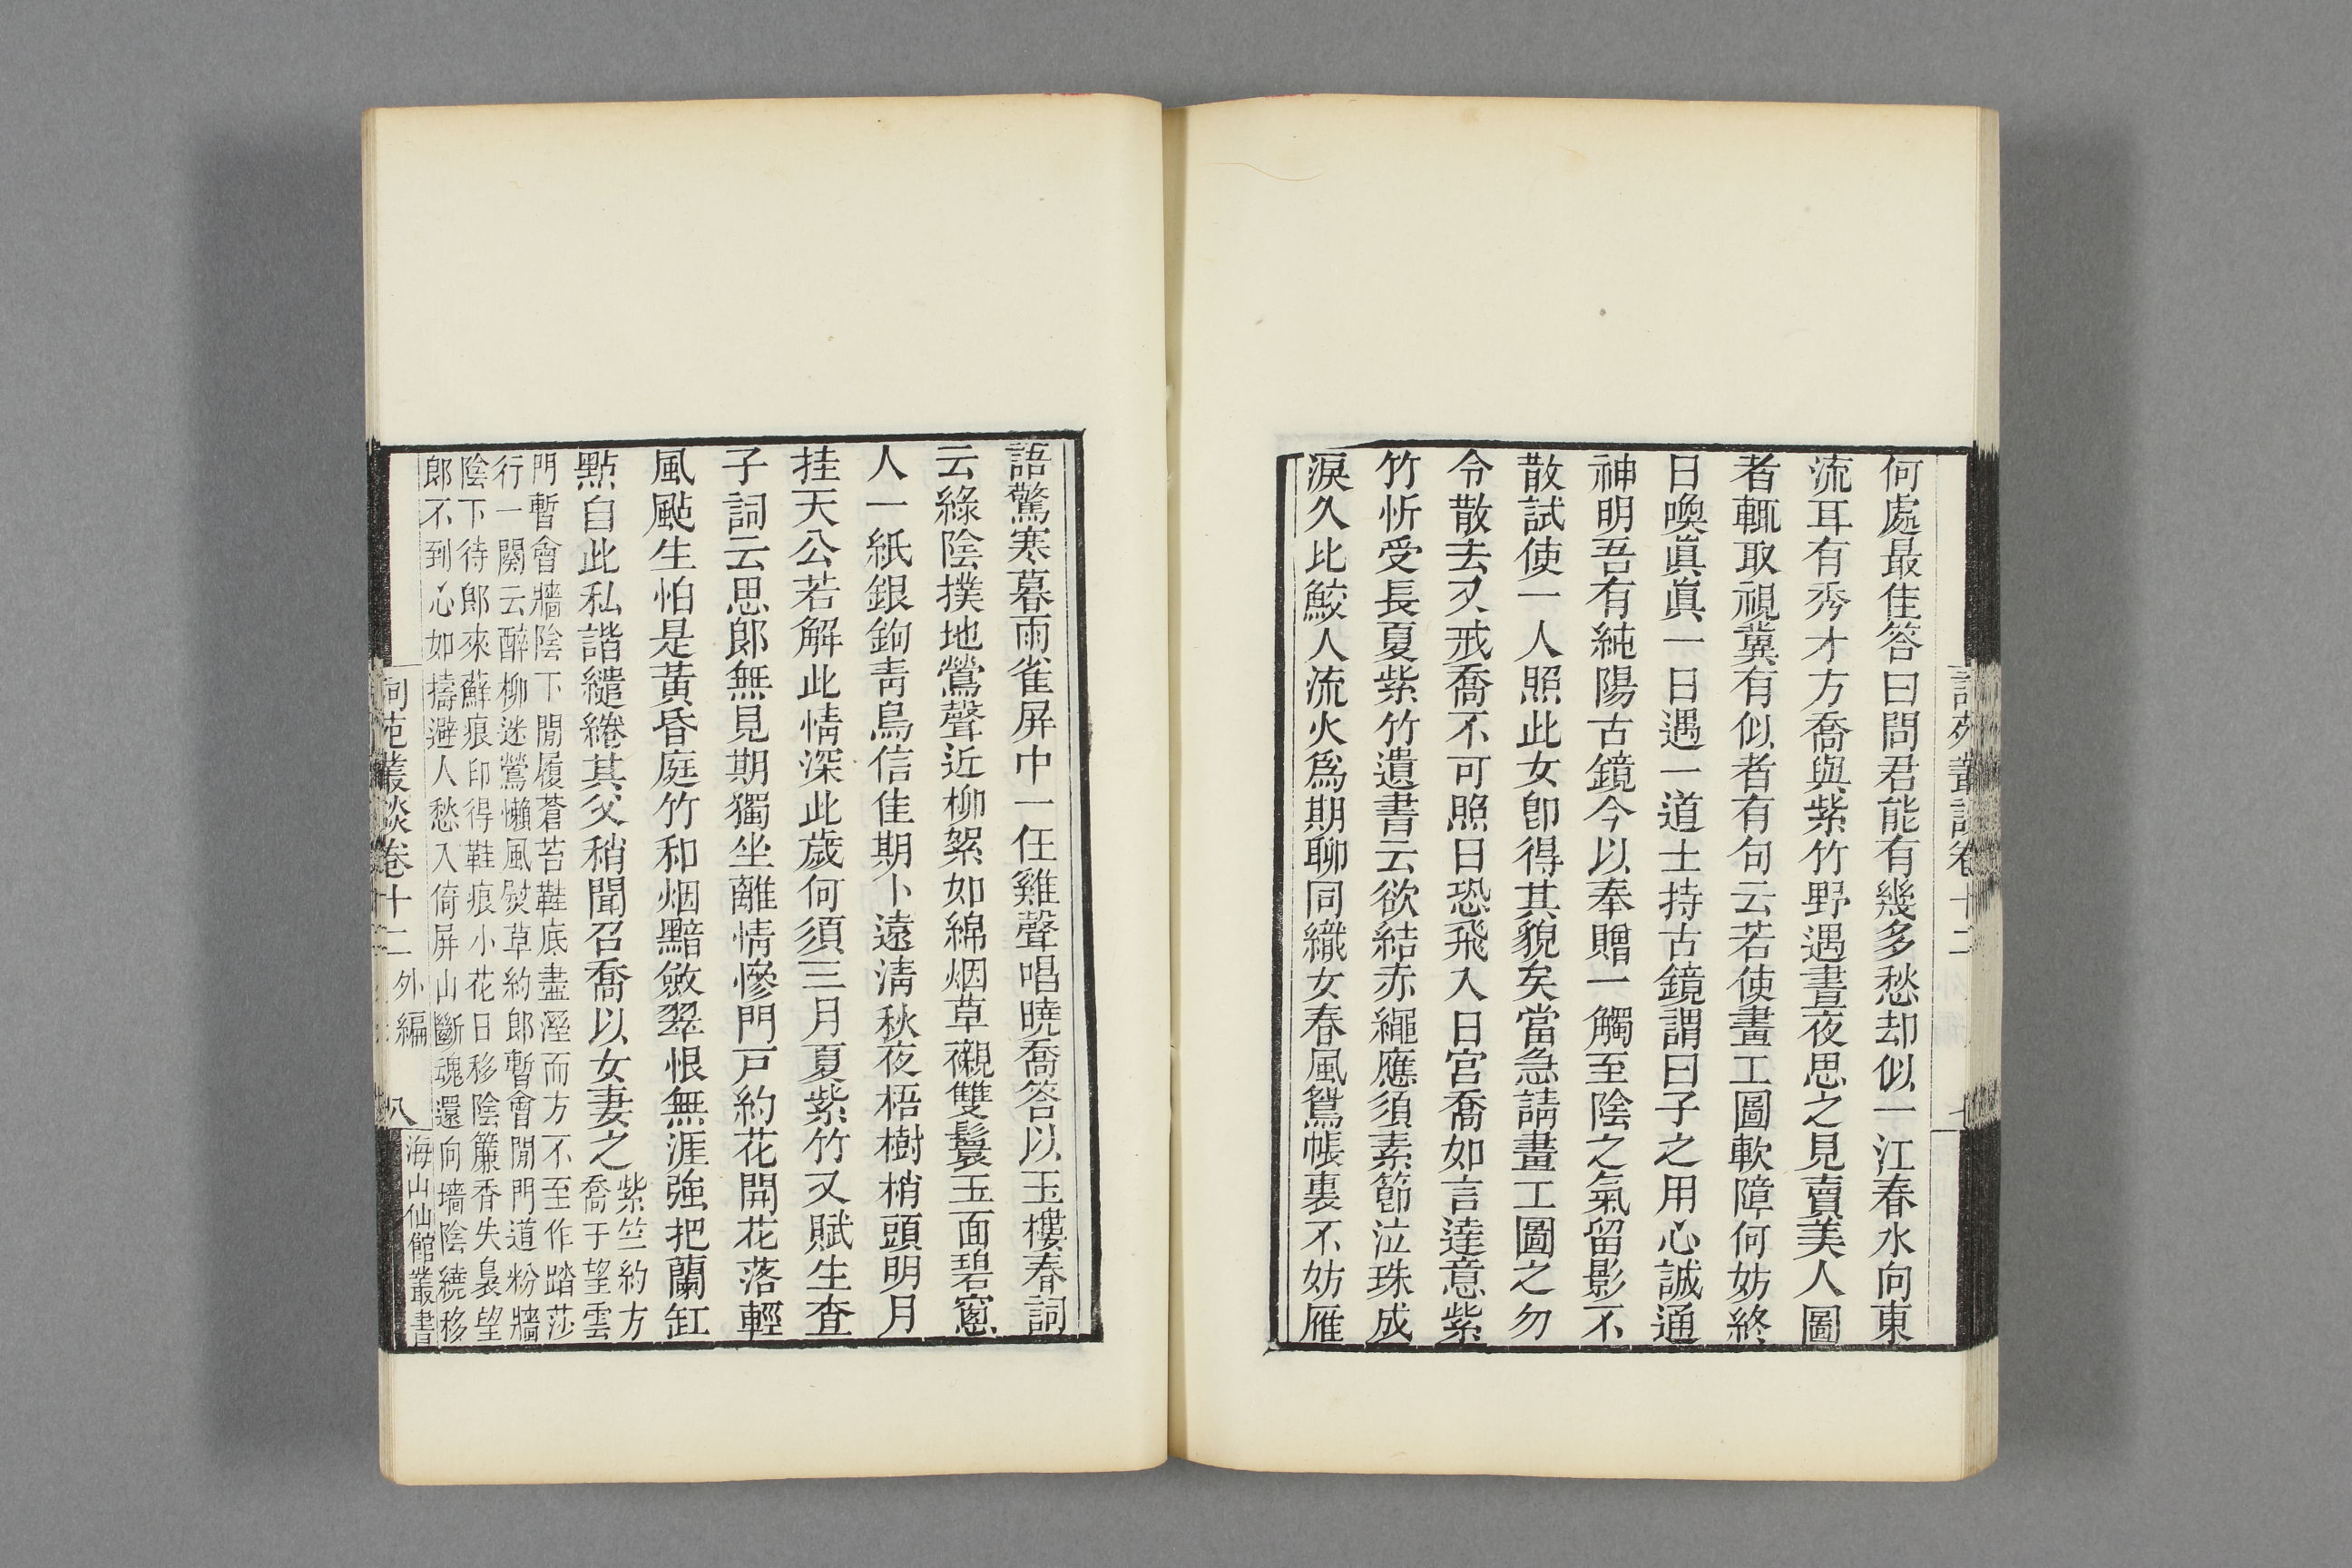 何處最佳答曰問君能有幾多愁却似一江春水向東
流耳有秀才方喬與紫竹野遇晝夜思之見賣美人圖
者輒取視冀有似者有句云若使畫工圖軟障何妨終
日喚眞眞一日遇一道士持古鏡謂曰子之用心誠通
神明吾有純陽古鏡今以奉贈一觸至陰之氣留影不
散試使一人照此女卽得其貌矣當急請畫工圖之勿
令散去又戒喬不可照日恐飛入日宮喬如言達意紫
竹忻受長夏紫竹遺書云欲結赤繩應須素節泣珠成
淚久比鮫人流火爲期聊同織女春風鴛帳裏不妨雁
語驚寒暮雨雀屏中一任雞聲唱曉喬答以玉樓春詞
云綠陰撲地鶯聲近柳絮如綿烟草襯雙鬟玉面碧窗
人一紙銀鉤靑鳥信佳期卜遠淸秋夜梧樹梢頭明月
挂天公若解此情深此歲何須三月夏紫竹又賦生查
子詞云思郎無見期獨坐離情慘門戸約花開花落輕
風颭生怕是黃昏庭竹和烟黯斂翠恨無涯強把蘭缸
點自此私諧繾綣其父稍聞召喬以女妻之
紫竺約方
喬于望雲
門暫會牆陰下閒履蒼苔鞋底盡溼而方不至作踏莎
行一闋云醉柳迷鶯懶風熨草約郎暫會閒門道粉牆
陰下待郎來蘚痕印得鞋痕小花日移陰簾香失裊望
郎不到心如擣避人愁入倚屏山斷魂還向墻陰繞移
詞苑叢談卷十二 外編 八 海山仙館叢書